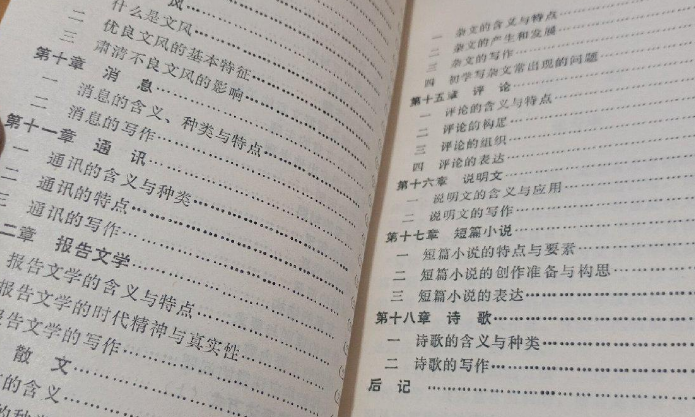 风
什么是文风
二 优良文风的基本特征
三 肃清不良文风的影响
第十章 消 息
一 消息的含义、种类与特点
二 消息的写作
第十一章 通 讯
一 通讯的含义与种类
二 通讯的特点
三 通讯的写作
二章 报告文学
报告文学的含义与特点
报告文学的时代精神与真实性
报告文学的写作
散 文
的含义
一 杂文的含义与特点
二 杂文的产生和发展
三 杂文的写作
四 初学写杂文常出现的问题
第十五章 评 论
一 评论的含义与特点
二 评论的构思
三 评论的组织
四 评论的表达
第十六章 说明文
一 说明文的含义与应用
二 说明文的写作
第十七章 短篇小说
一 短篇小说的特点与要素
二 短篇小说的创作准备与构思
三 短篇小说的表达
第十八章 诗 歌
一 诗歌的含义与种类
二 诗歌的写作
后 记